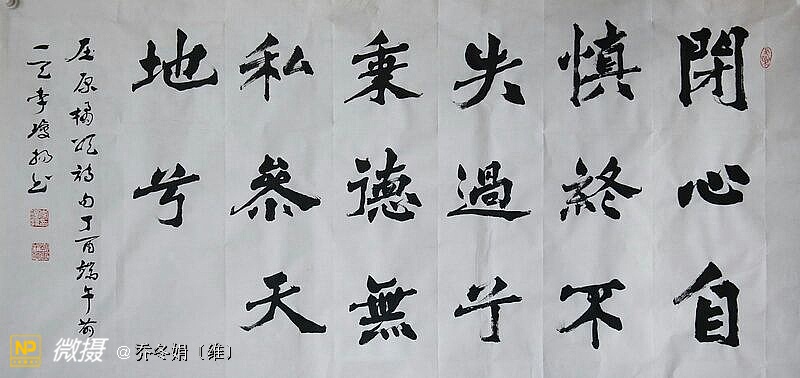 閉心自
慎終不
失過兮
秉德無
私參天
地兮
屈原橘頌詩句丁酉端午前
李瓊书
NP 微摄 @乔冬娟（维）